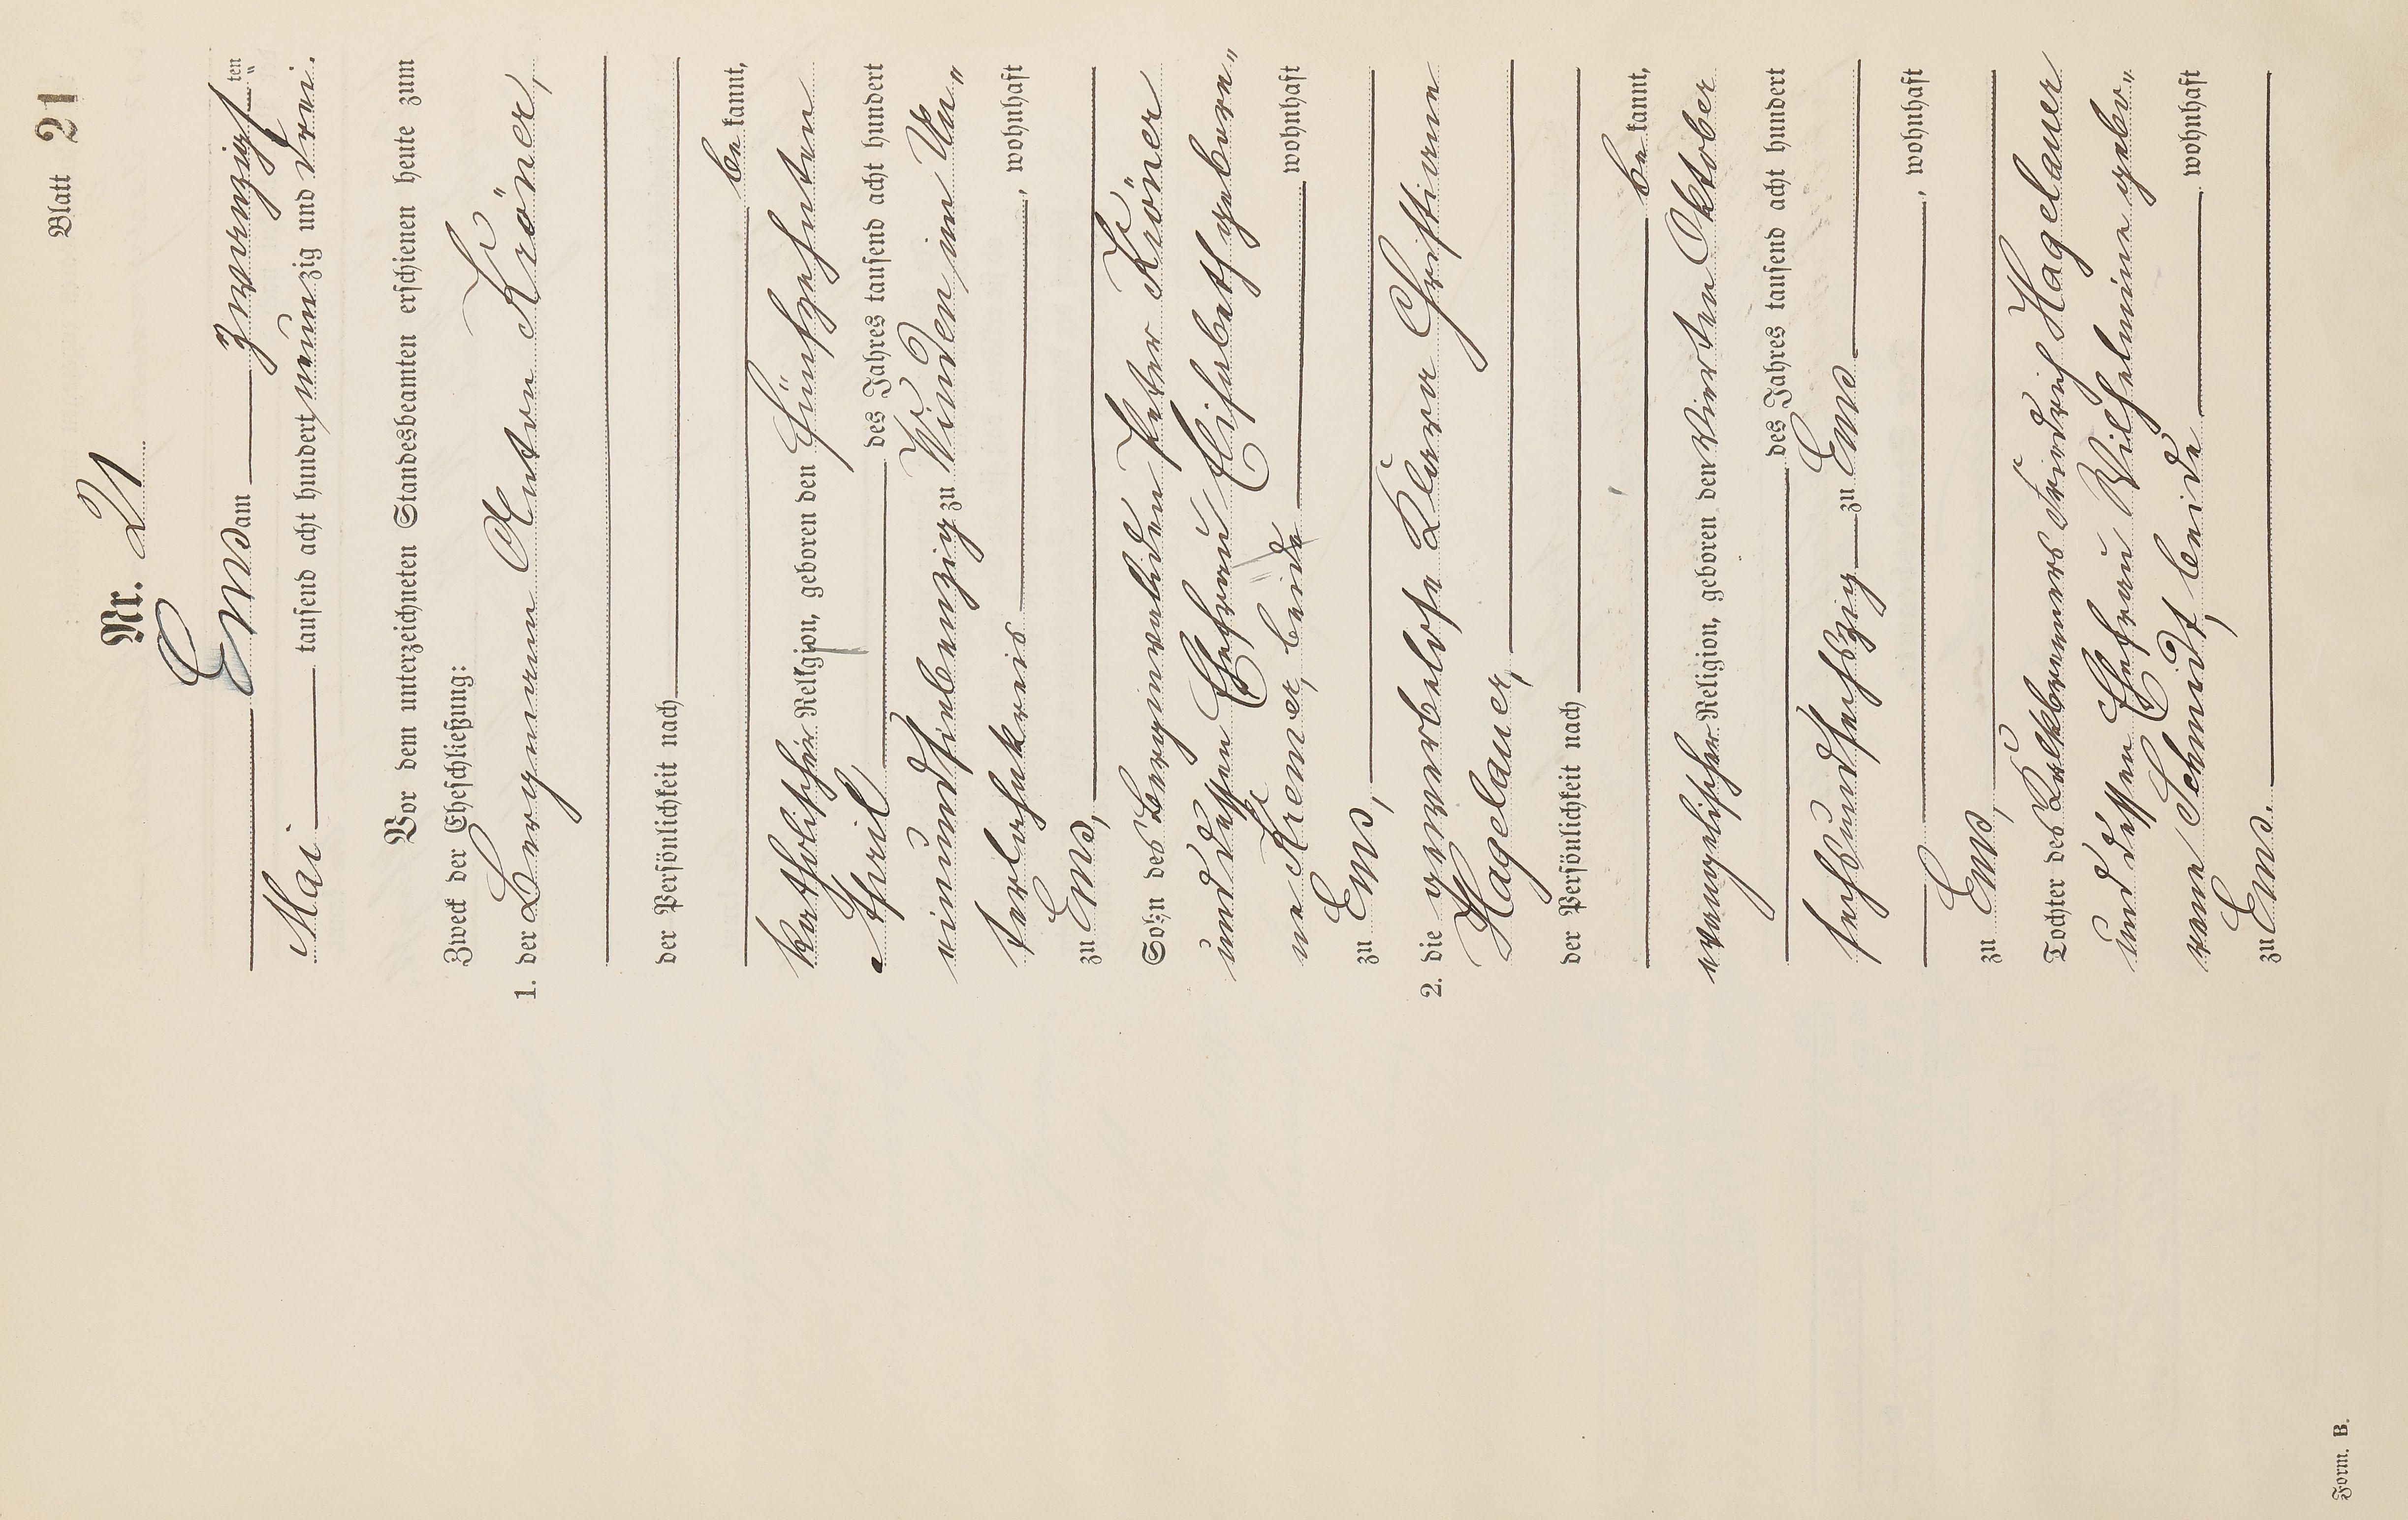 Blatt 21
Nr. 21
Ems am zwanzigsten
Mai tausend acht hundert neunzig und drei.
Vor dem unterzeichneten Standesbeamten erschienen heute zum
Zweck der Eheschließung:
1. der Bergmann Anton Kröner,
der Persönlichkeit nach
be kannt,
katholischer Religion, geboren den fünfzehnten
April des Jahres tausend acht hundert
einundsiebenzig zu Winden im Un„
terlahnkreis, wohnhaft
zu Ems,
Sohn des Berginvaliden Peter Kröner
und dessen Ehefrau Elisabeth gebore„
ne Kremer, beide wohnhaft
zu Ems,
2. die gewerbelose Klara Christiane
Hagelauer,
der Persönlichkeit nach
be kannt,
evangelischer Religion, geboren den vierten Oktober
des Jahres tausend acht hundert
sechsundsechszig zu Ems
, wohnhaft
zu Ems,
Tochter des Kalkbrenners Friedrich Hagelauer
und dessen Ehefrau Wilhelmine gebo„
rene Schmidt, beide wohnhaft
zu Ems.
Form. B.